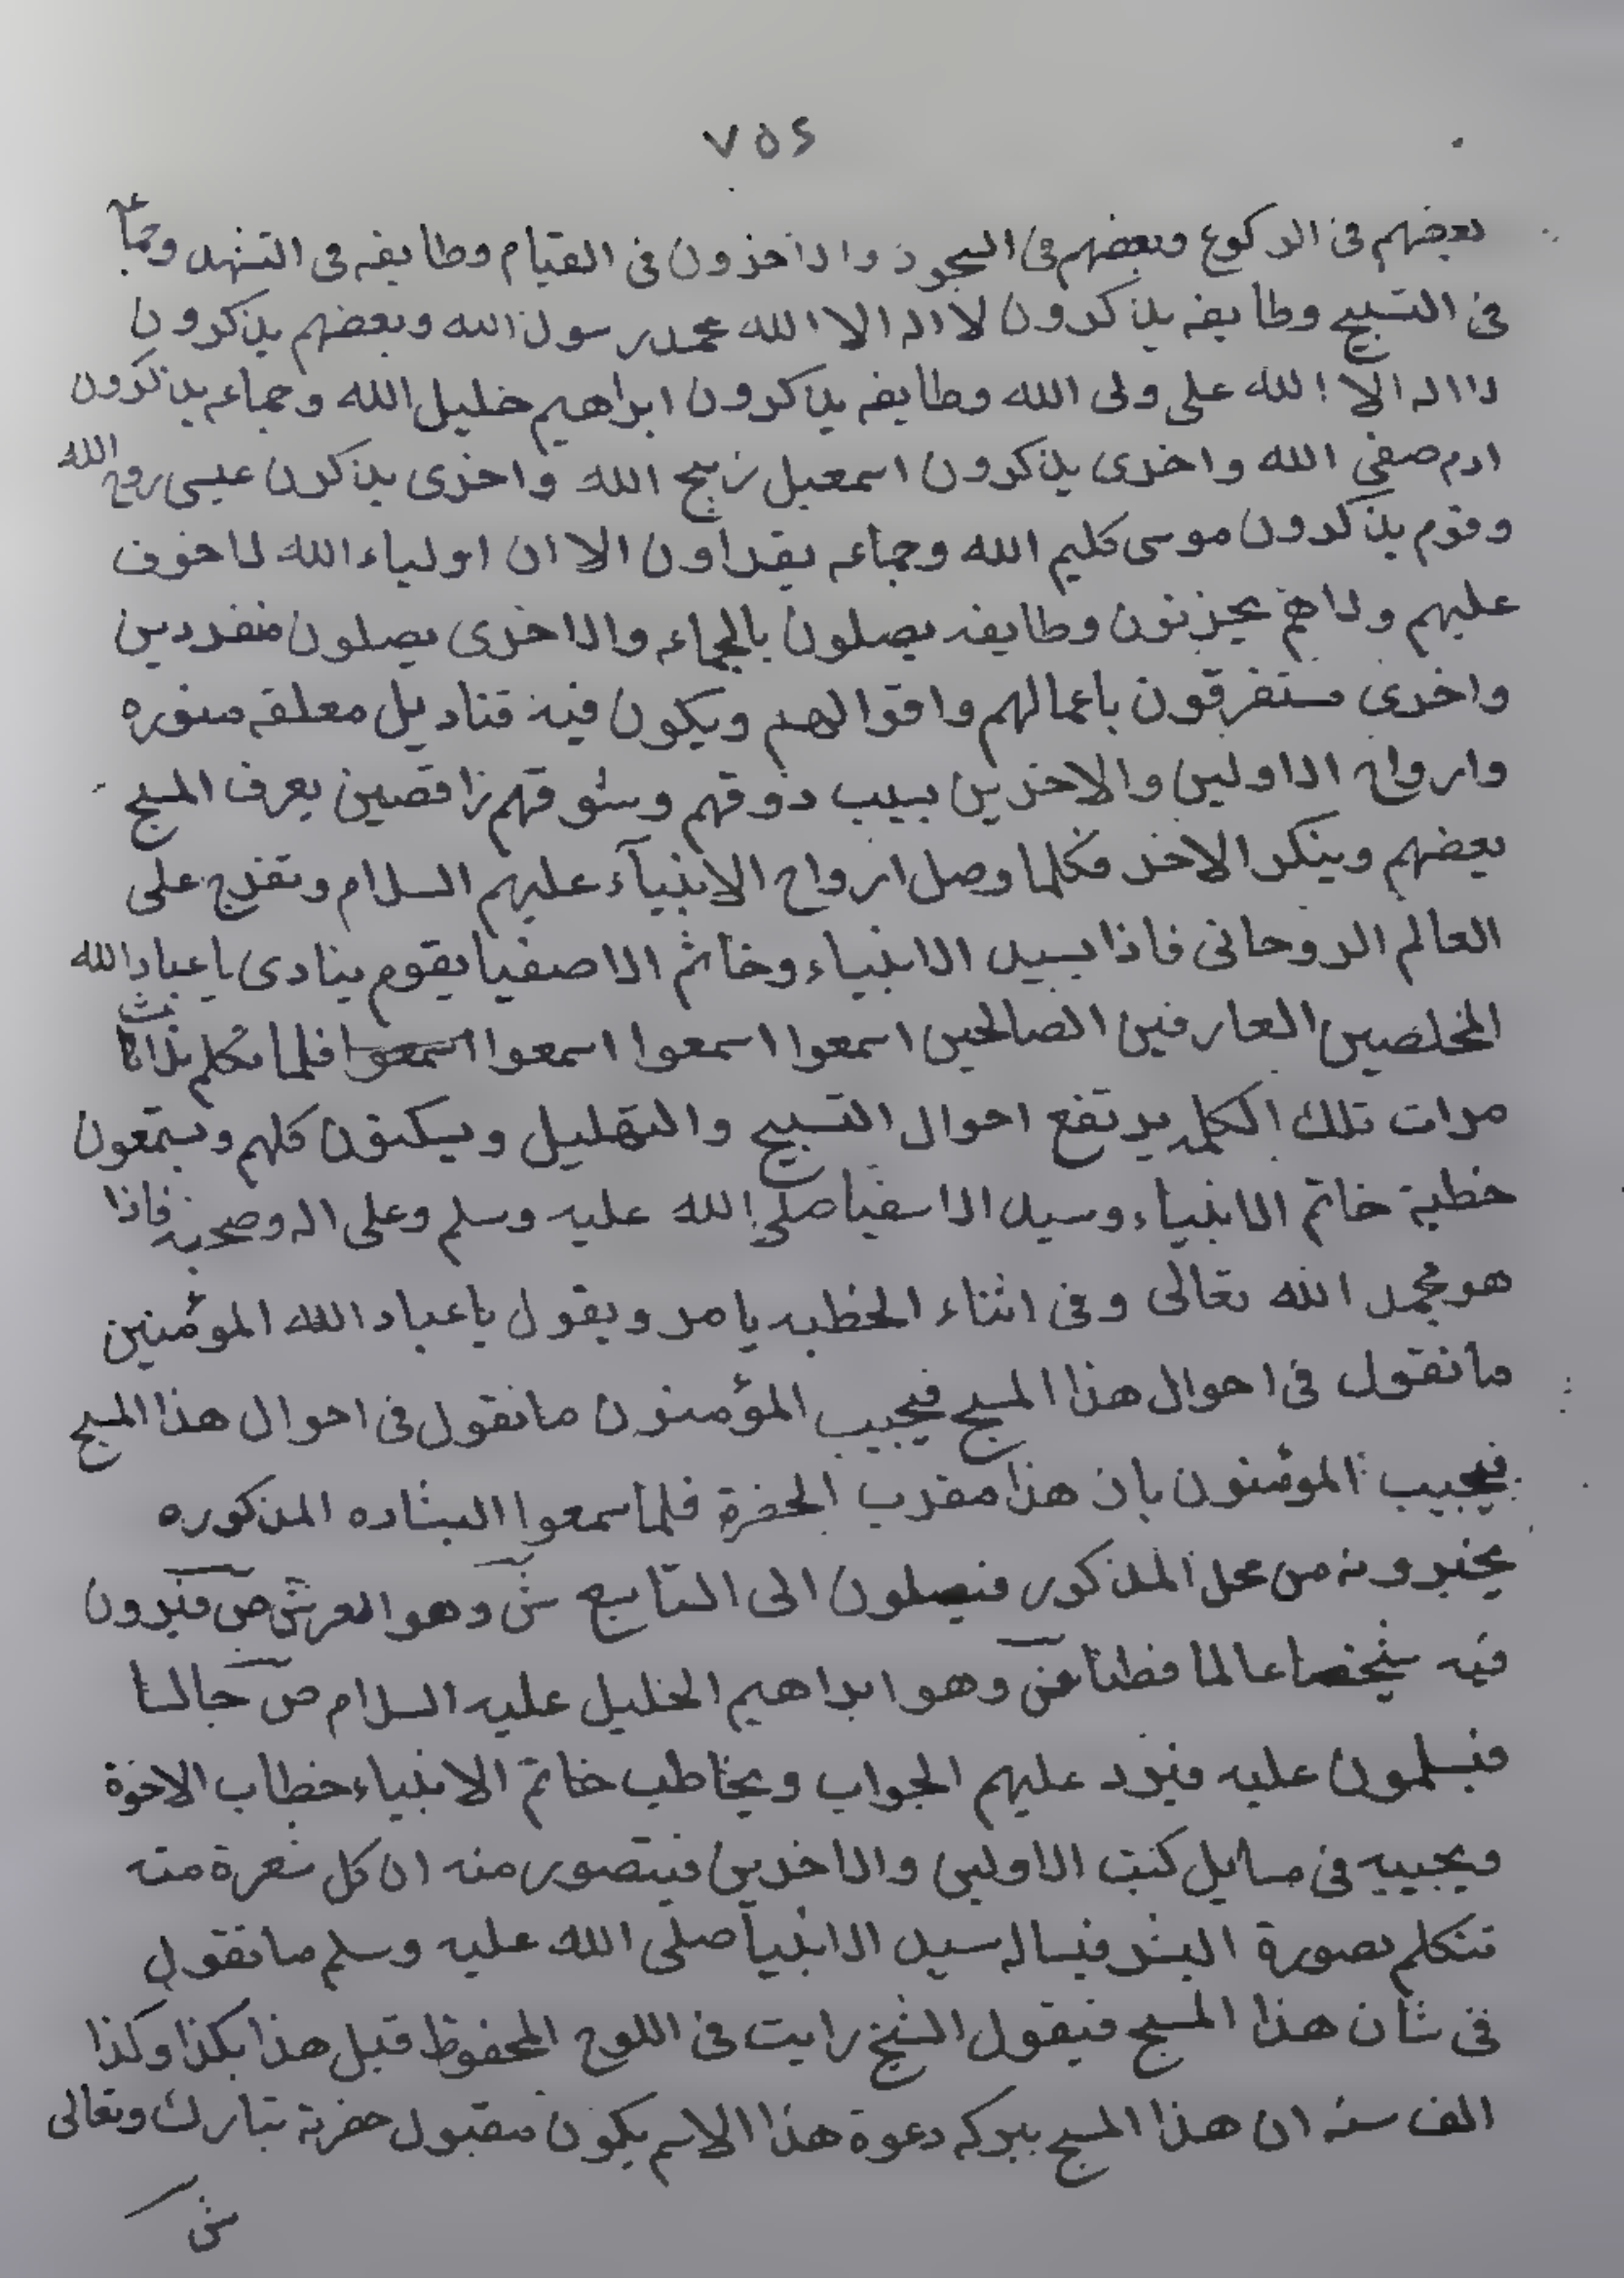 ٧٥٤
بعضهم فى الركوع وبعضهم فى السجود والاخرون فى القيام وطايفه فى التشهد وجماعه
فى التسبيح وطايفه يذكرون لا اله الا الله محمد رسول الله وبعضهم يذكرون
لا اله الا الله على ولى الله وطايفه يذكرون ابراهيم خليل الله وجماعه يذكرون
ادم صفى الله واخرى يذكرون اسمعيل زبيح الله واخرى يذكرن عيسى روح الله
وقوم يذكرون موسى كليم الله وجماعه يقراون الا ان اولياء الله لا خوف
عليهم ولا هم يحزنون وطايفه يصلون بالجماعه والاخرى يصلون منفردين
واخرى مستفرقون باعمالهم واقوالهم ويكون فيه قناديل معلقه منوره
وارواح الاولين والاخرين بسبب ذوقهم وشوقهم زاقصين يعرف المسبح
بعضهم وينكر الاخر فكلما وصل ارواح الانبيآء عليهم السلام وتفرج على
العالم الروحانى فاذا بسيد الانبياء وخاتم الاصفيا يقوم ينادى يا عباد الله
المخلصين العارفين الصالحين اسمعوا اسمعوا اسمعوا اسمعوا فلما تكلم ثلاث
مرات تلك الكلمه يرتفع احوال التسبيح والتهليل ويسكتون كلهم ويستمعون
خطبة خاتم الانبياء وسيد الاسفيا صلى الله عليه وسلم وعلى اله وصحبه فاذا
هو محمد الله تعالى وفى اثناء الخطبه يامر ويقول يا عباد الله المؤمنين
ما تقول فى احوال هذا المسبح فيجيب المؤمنون ما نقول فى احوال هذا المسبح
فيجيب المؤمنون بان هذا مقرب الحضرة فلما سمعوا البشاره المذكوره
يخبرونه من محل المذكور فيصلون الى التاسع ش وهو العرش ص فيرون
فيه شيخصا عالما فطنا ش وهو ابراهيم الخليل عليه السلام ص جالسا
فيسلمون عليه فيرد عليهم الجواب ويخاطب خاتم الانبياء خطاب الاخوة
ويجيبه فى مسايل كتب الاولين والاخرين فيتصور منه ان كل شعرة منه
تتكلم بصورة البشر فيساله سيد الانبيآ صلى الله عليه وسلم ما تقول
فى شان هذا المسبح فيقول الشيخ رايت فى اللوح المحفوظ قبل هذا بكذا وكذا
الف سنه ان هذا المسبح ببركه دعوة هذا الاسم يكون مقبول حضرة تبارك وتعالى
ش